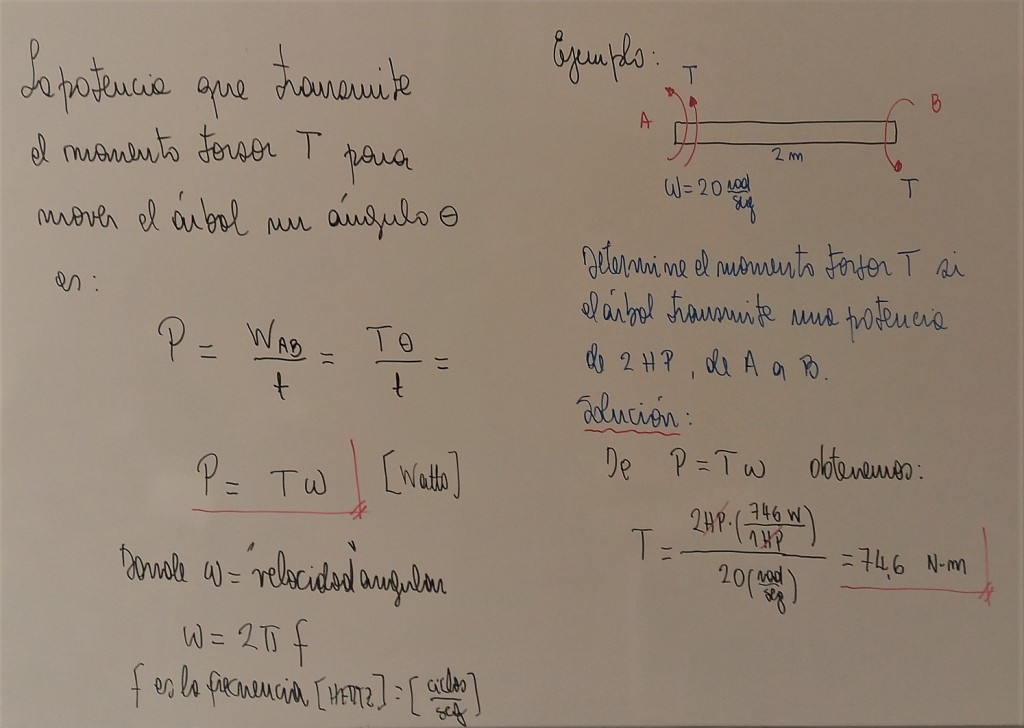 La potencia que transmite
el momento torsor T para
mover el árbol un ángulo θ
es:
P = W_AB/t = Tθ/t =
P = Tω [Watts]
Donde ω = "velocidad angular"
ω = 2π f
f es la frecuencia [HERTZ] = [ciclos/seg]
Ejemplo:
T
A
B
2 m
ω = 20 rad/seg
T
Determine el momento torsor T si
el árbol transmite una potencia
de 2 HP, de A a B.
Solución:
De P = Tω obtenemos:
T = 2HP·(746 W/1HP) / 20(rad/seg) = 74.6 N-m